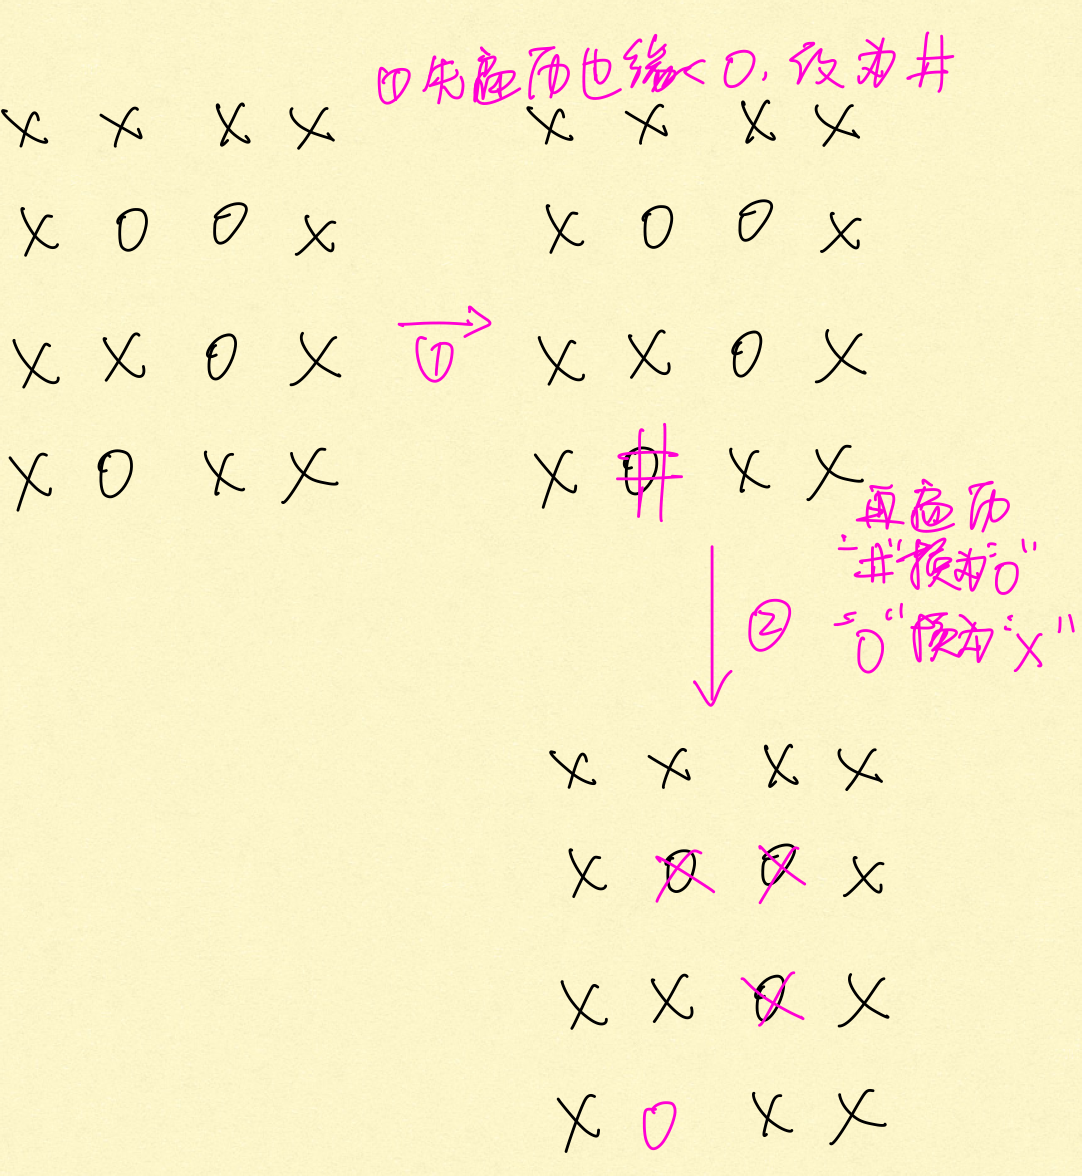 ①先遍历边缘<O,设为#
X X X X
X O O X
X X O X
X O X X
①
X X X X
X O O X
X X O X
X # X X
②
再遍历
"#"换为"O"
"O"换为"X"
X X X X
X X X X
X X X X
X O X X